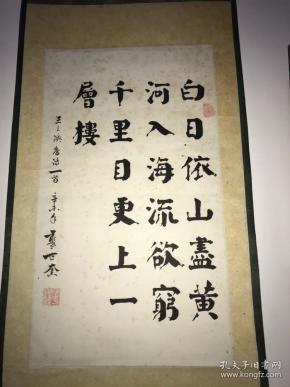 白日依山盡黃
河入海流欲窮
千里目更上一
層樓
王之渙唐詩一首 辛未年 龔世奎
孔夫子旧书网